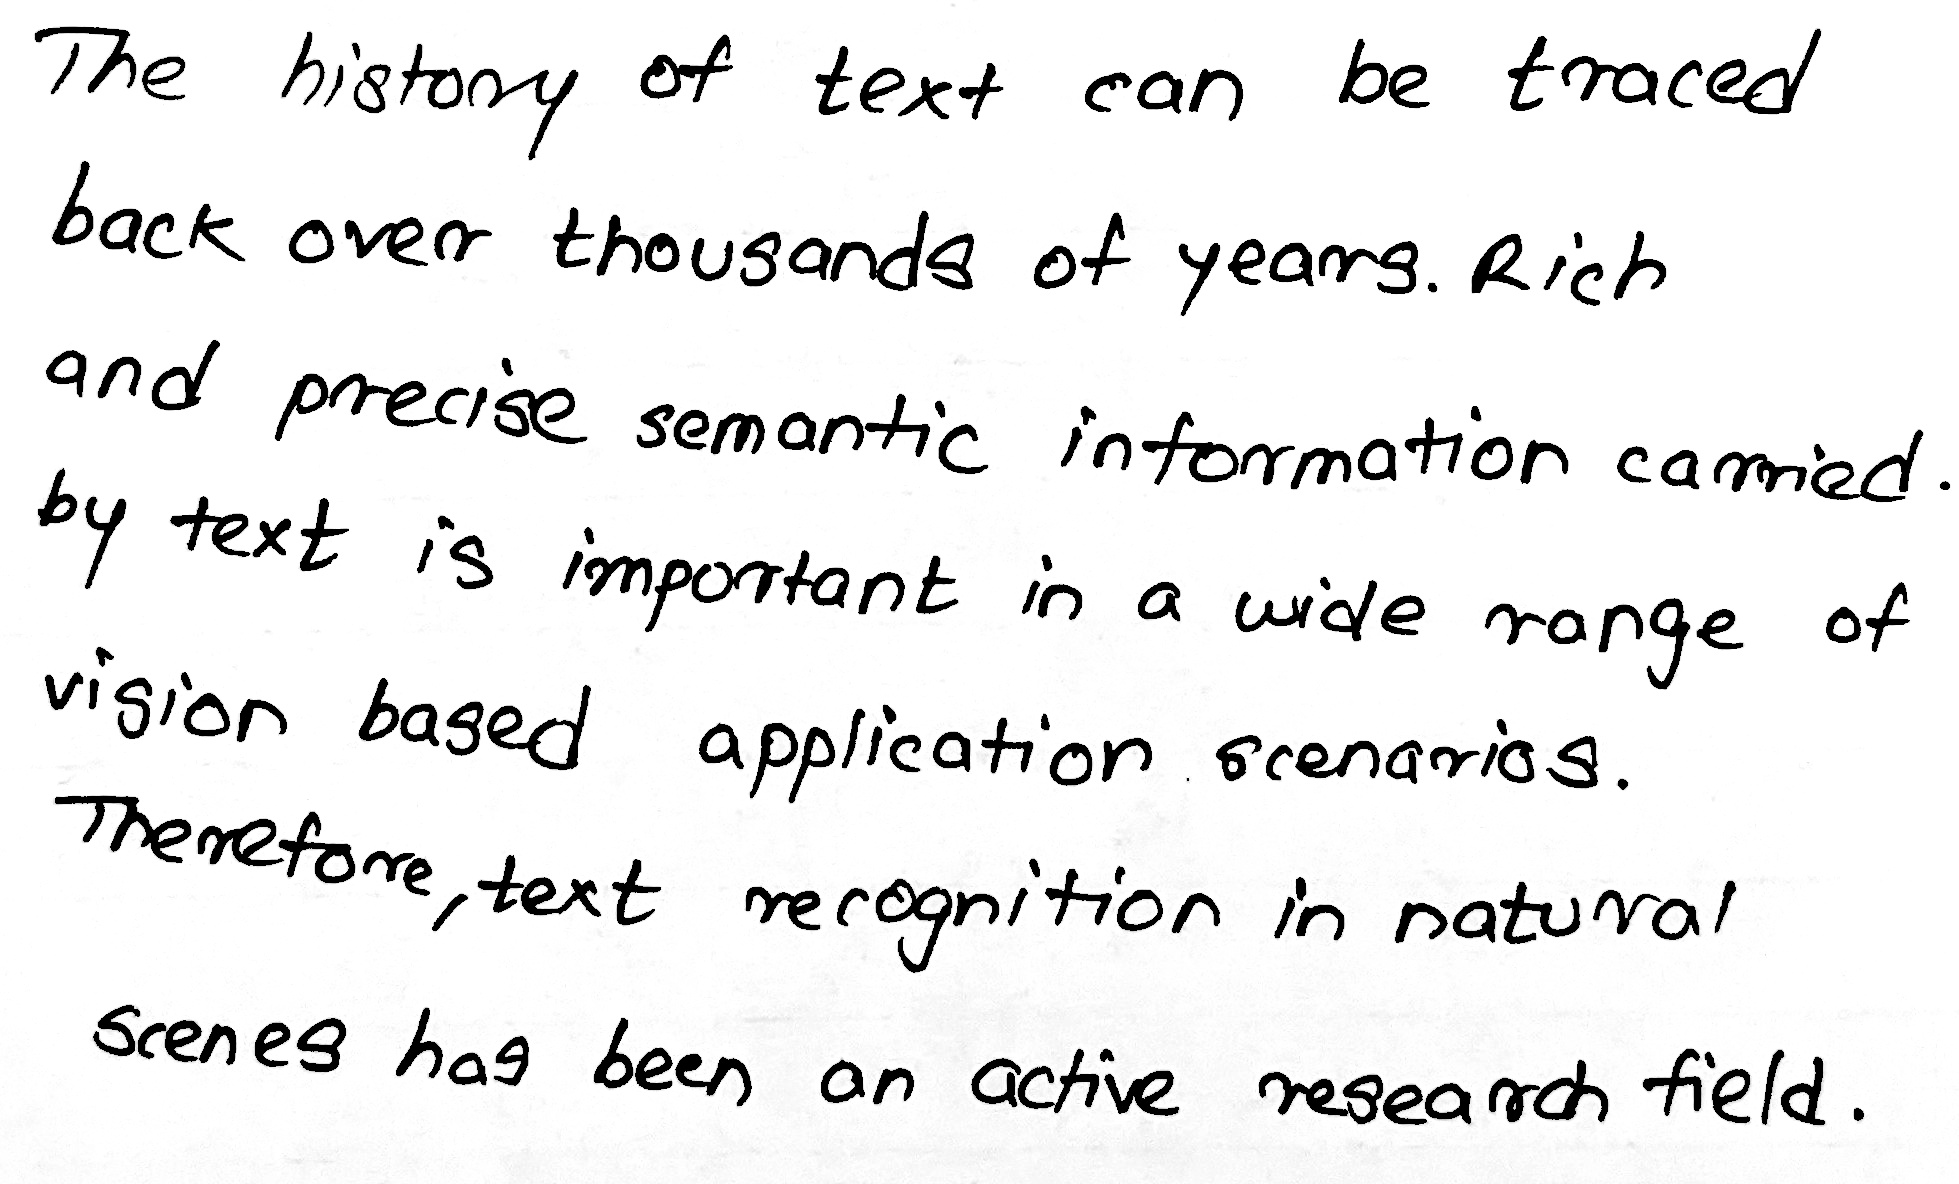 The history of text can be traced
back over thousands of years. Rich
and precise semantic information carried.
by text is important in a wide range of
vision based application scenarios.
Therefore, text recognition in natural
scenes has been an active research field.